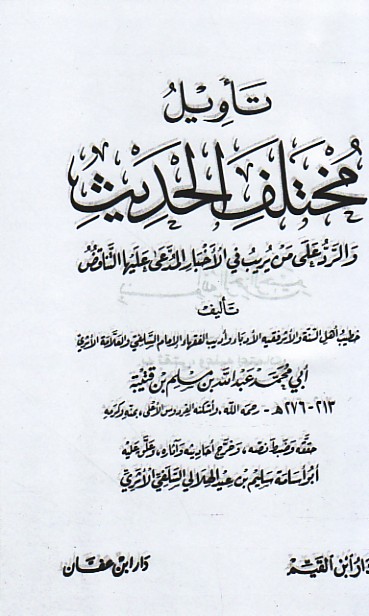 تأويل
مختلف الحديث
والرد على من يريب في الأخبار المدعى عليها التناقض
تأليف
خطيب أهل السنة والأثر فقيه الأدباء وأديب الفقهاء الإمام السلفي والعلامة الأثري
أبي محمد عبد الله بن مسلم بن قتيبة
٢١٣ - ٢٧٦ هـ - رحمه الله، وأسكنه الفردوس الأعلى، بمنه وكرمه
حققه وضبط نصه، وخرج أحاديثه وآثاره، وعلق عليه
أبو أسامة سليم بن عيد الهلالي السلفي الأثري
دار ابن القيم
دار ابن عفان